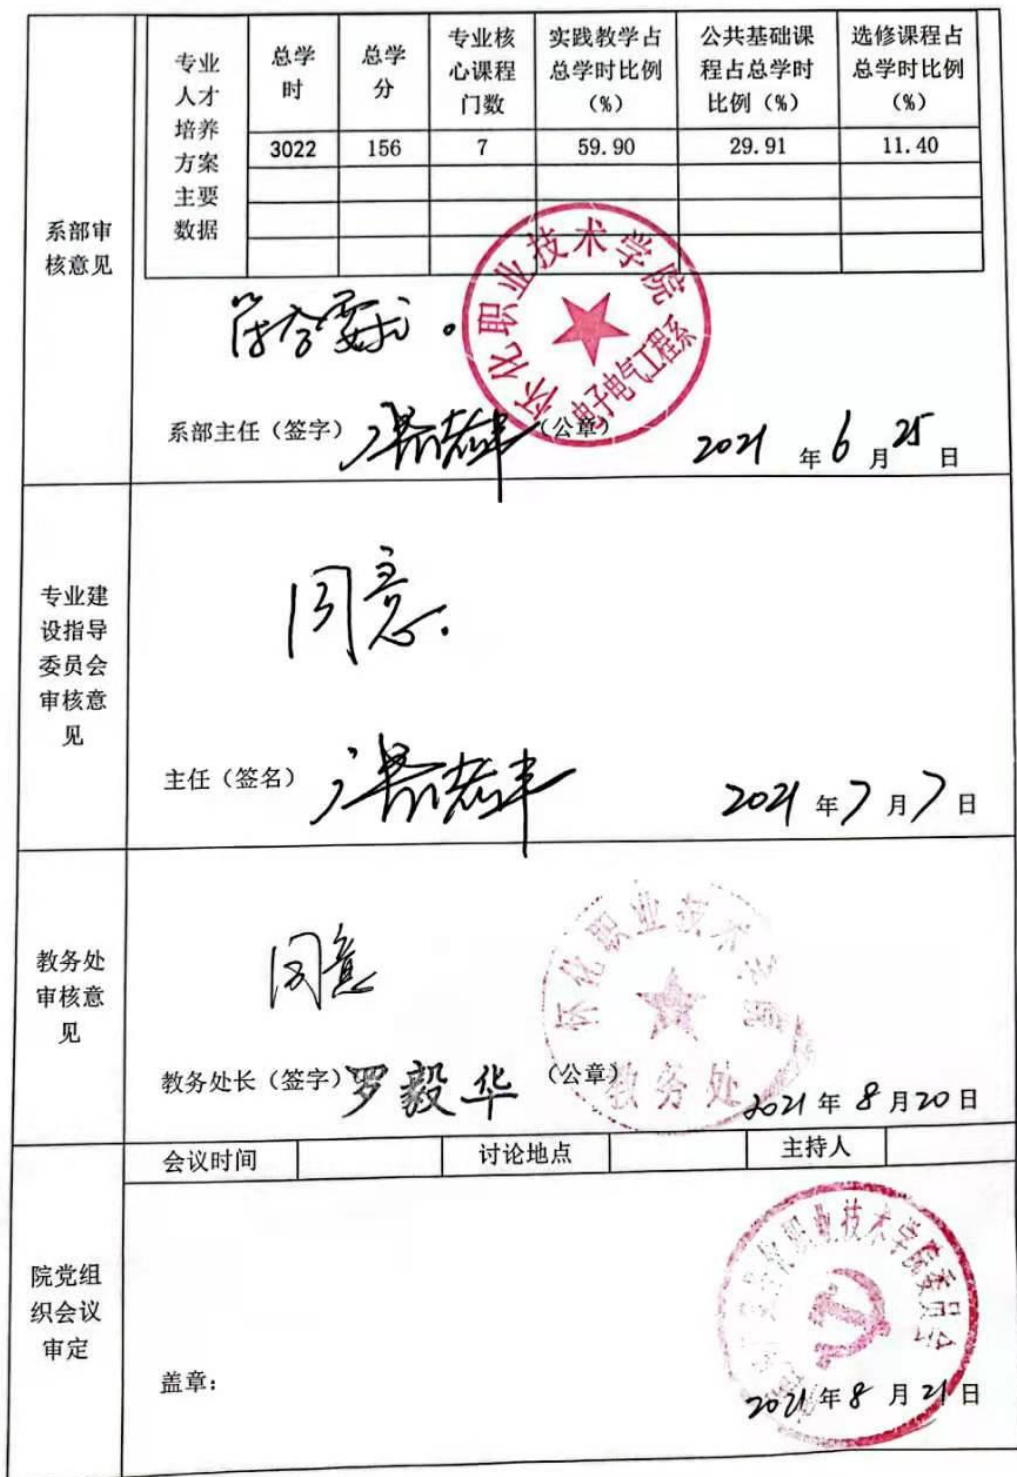 系部审
核意见
专业
人才
培养
方案
主要
数据
总学
时
总学
分
专业核
心课程
门数
实践教学占
总学时比例
(%)
公共基础课
程占总学时
比例（%）
选修课程占
总学时比例
(%)
3022 156 7 59.90 29.91 11.40
符合要求。
怀化职业技术学院
电子电气工程系
系部主任（签字） （公章） 2021 年 6 月 25 日
专业建
设指导
委员会
审核意
见
同意.
主任（签名） 2021 年 7 月 7 日
教务处
审核意
见
同意
怀化职业技术学院
教务处
教务处长（签字）罗毅华 （公章） 2021 年 8 月 20 日
院党组
织会议
审定
会议时间 讨论地点 主持人
怀化职业技术学院委员会
盖章：
2021 年 8 月 21 日